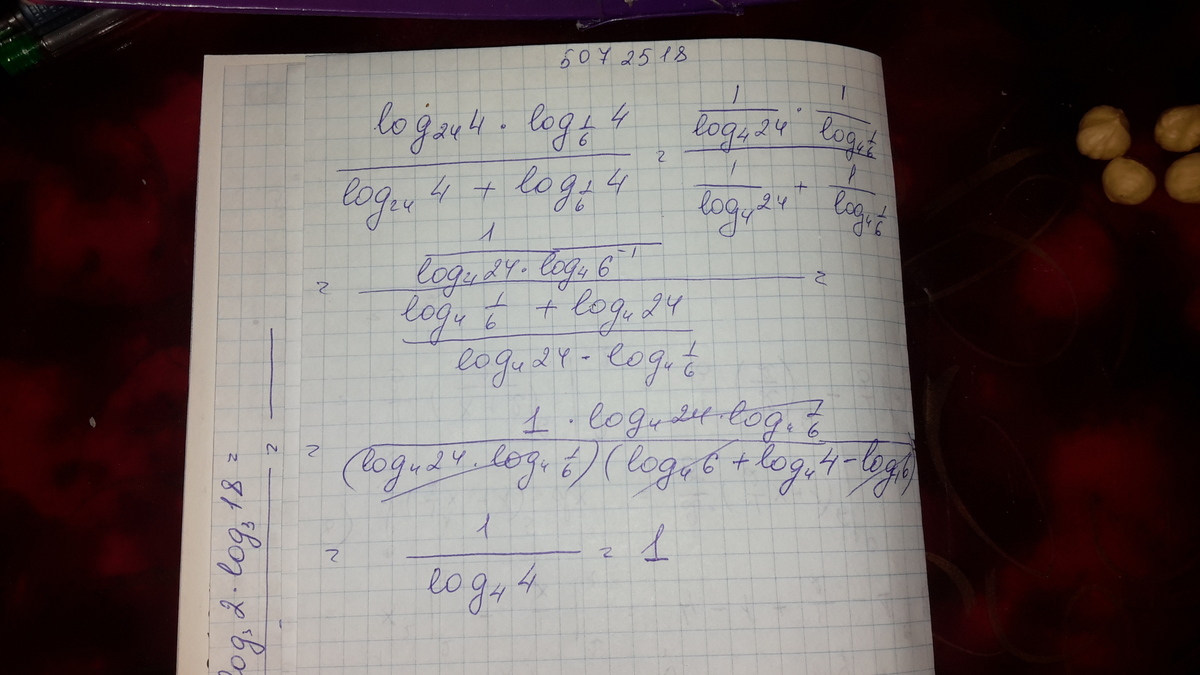 5072518
log₂₄4 · log_{1/6}4 / (log₂₄4 + log_{1/6}4) = (1/log₄24 · 1/log₄(1/6)) / (1/log₄24 + 1/log₄(1/6))
= (1 / (log₄24 · log₄6⁻¹)) / ((log₄(1/6) + log₄24) / (log₄24 · log₄(1/6))) =
= 1 · log₄24 · log₄(1/6) / ((log₄24 · log₄(1/6)) (log₄6 + log₄4 - log₄6))
= 1 / log₄4 = 1
log₃2 · log₃18 =
=